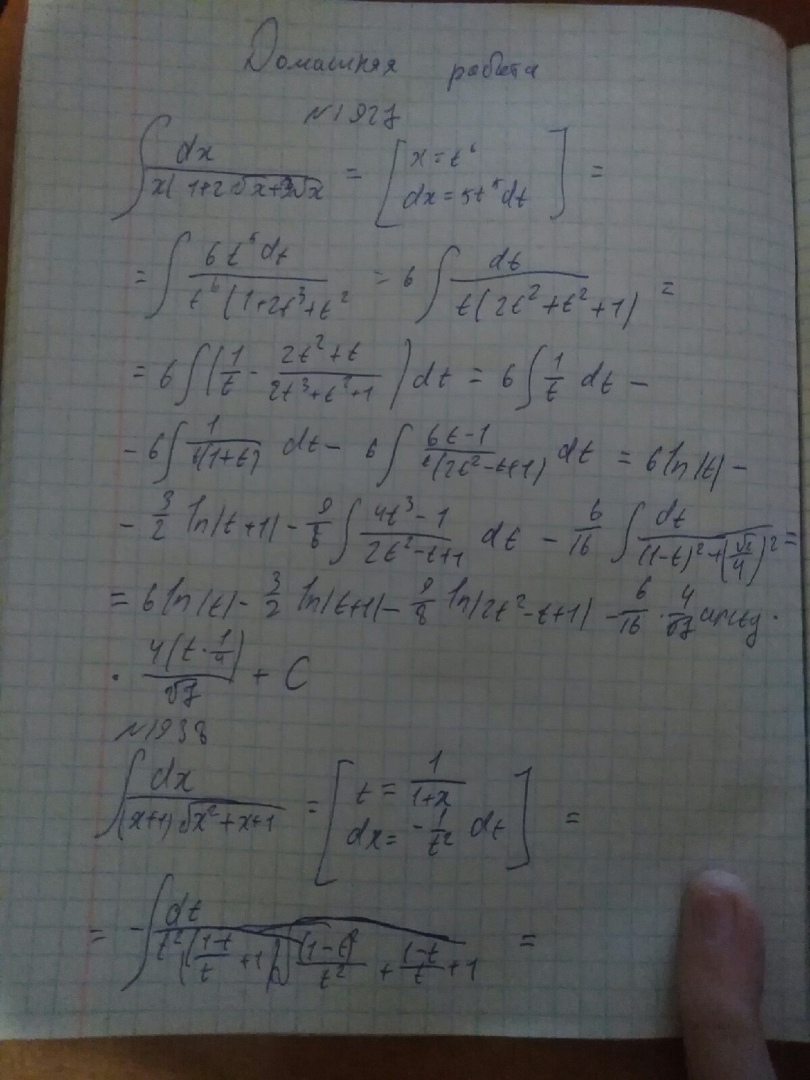 Домашняя работа
№1927
∫ dx / x(1+2√x+3√x = [x=t⁶ dx=5t⁵dt] =
= ∫ 6t⁵dt / t⁶(1+2t³+t² = 6 ∫ dt / t(2t²+t²+1) =
= 6∫(1/t - 2t²+t / 2t³+t²+1) dt = 6∫ 1/t dt -
- 6∫ 1 / 4(1+t) dt - 6∫ 6t-1 / 4(2t²-t+1) dt = 6 ln|t| -
- 3/2 ln|t+1| - 9/8 ∫ 4t³-1 / 2t²-t+1 dt - 6/16 ∫ dt / (1-t)²+(√7/4)² =
= 6 ln|t| - 3/2 ln|t+1| - 9/8 ln|2t²-t+1| - 6/16 · 4/√7 arctg ·
· 4(t·1/4) / √7 + C
№1938
∫ dx / (x+1)√x²+x+1 = [t = 1 / 1+x dx = -1/t² dt] =
= -∫ dt / t²(1-t / t +1)√(1-t)² / t² + 1-t / t +1 =